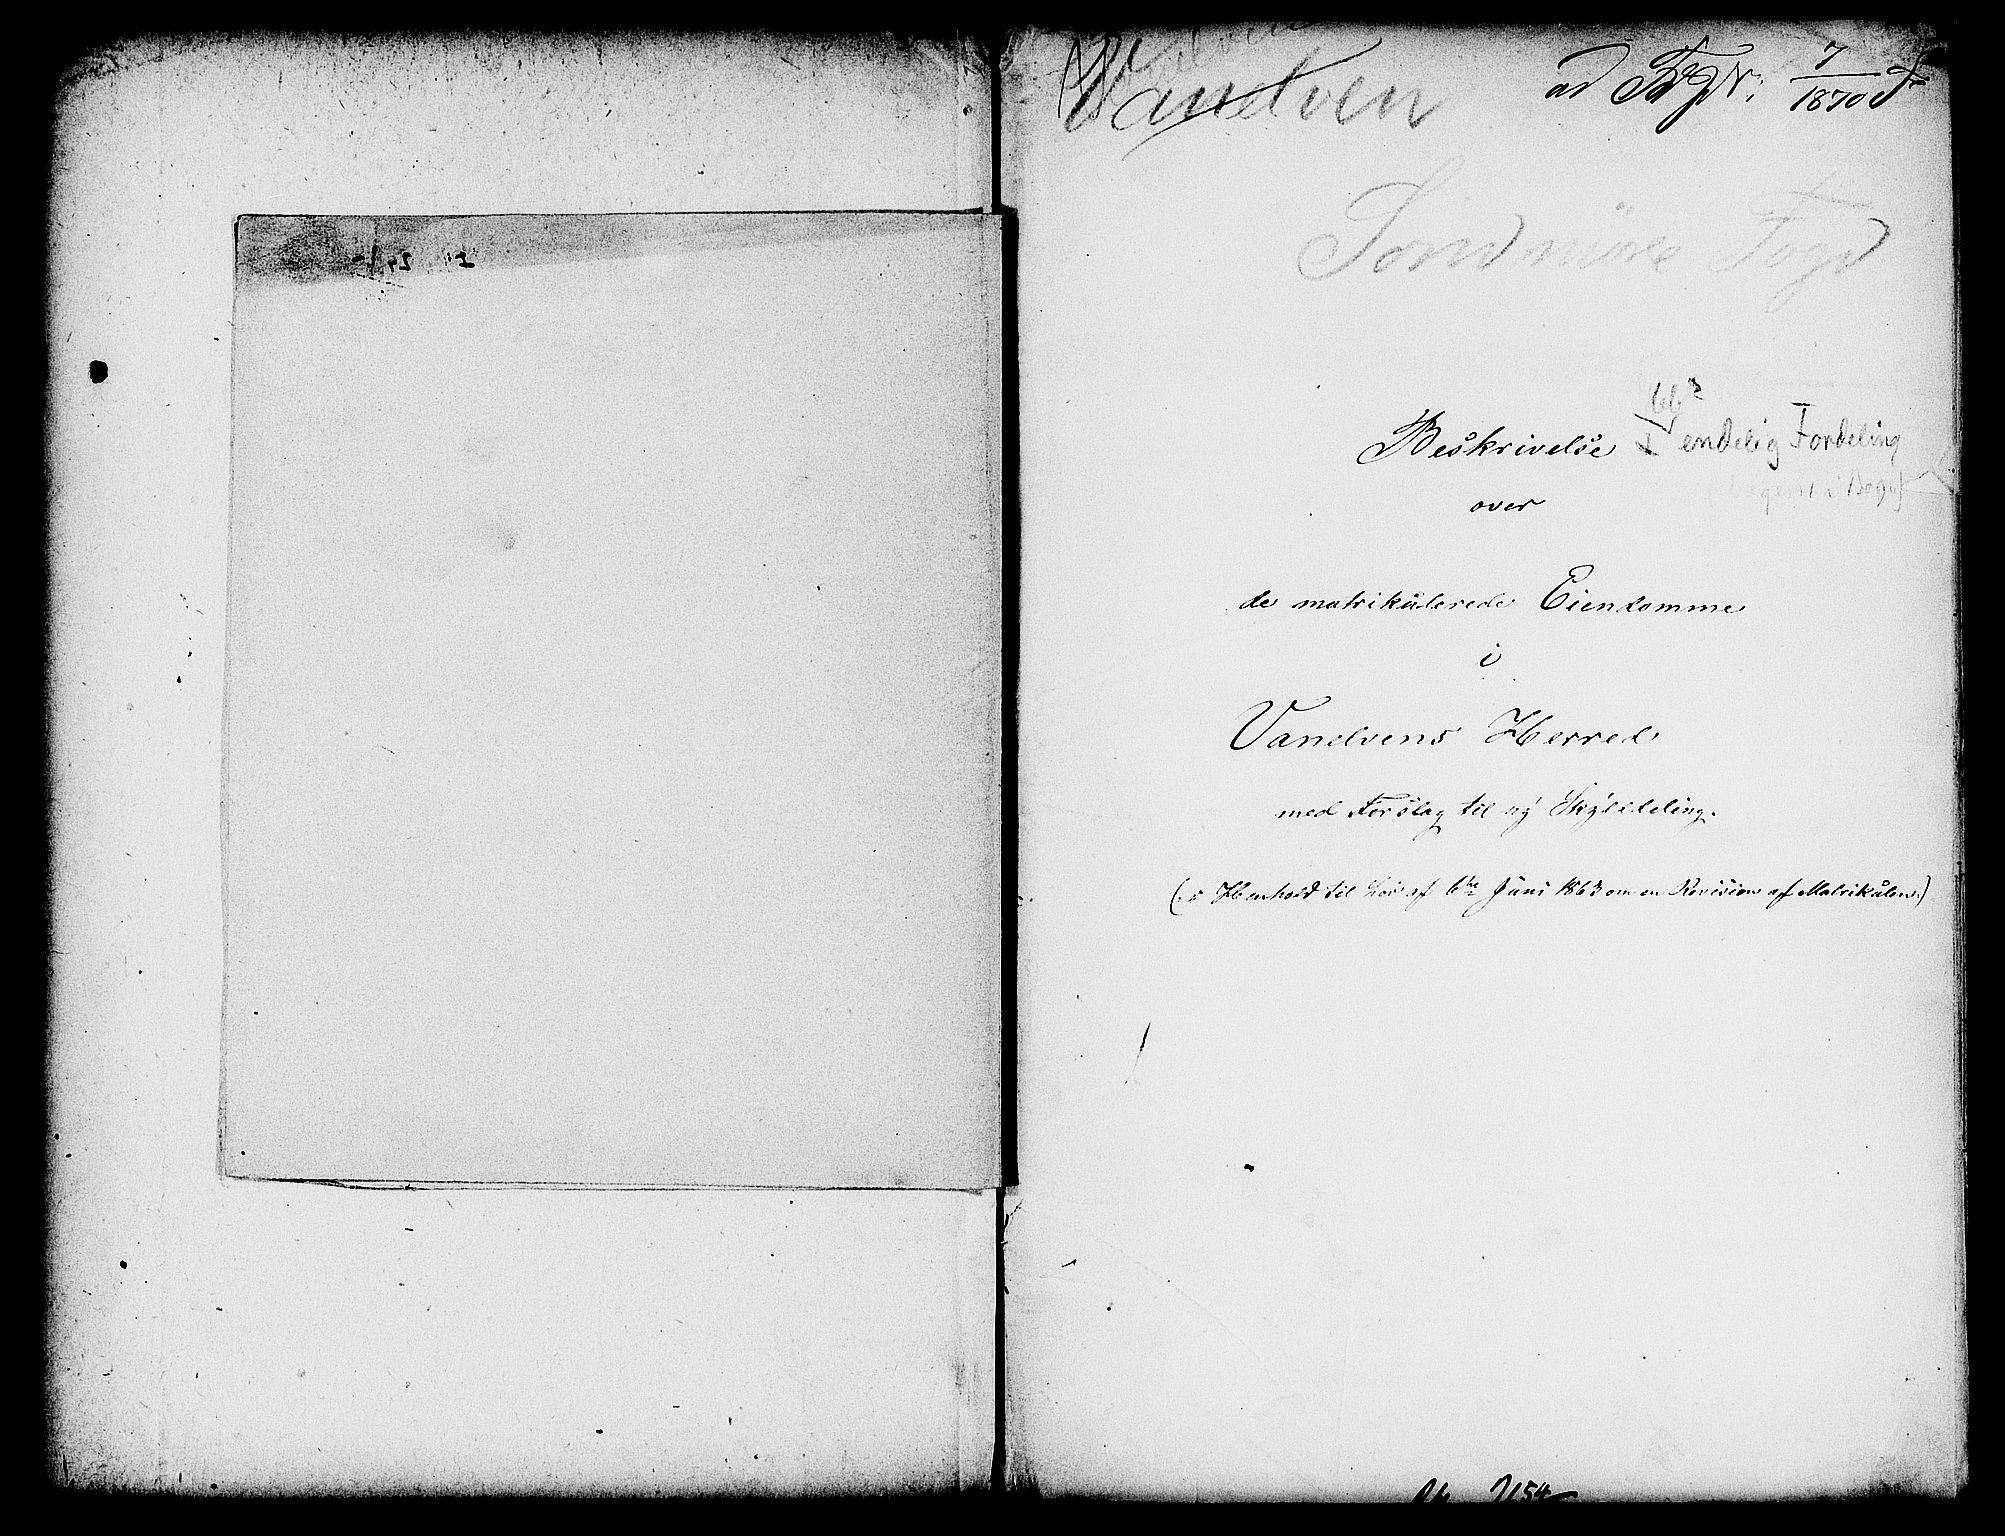 Vanelven
ad Bg N: 7/1870
Søndmøre Fogd
Beskrivelse
endelig Fordeling
over
de matrikulerede Eiendomme
i
Vanelvens Herred
med Forslag til ny Skylddeling.
(i Henhold til Lov af 6te Juni 1863 om en Revision af Matrikulen.)